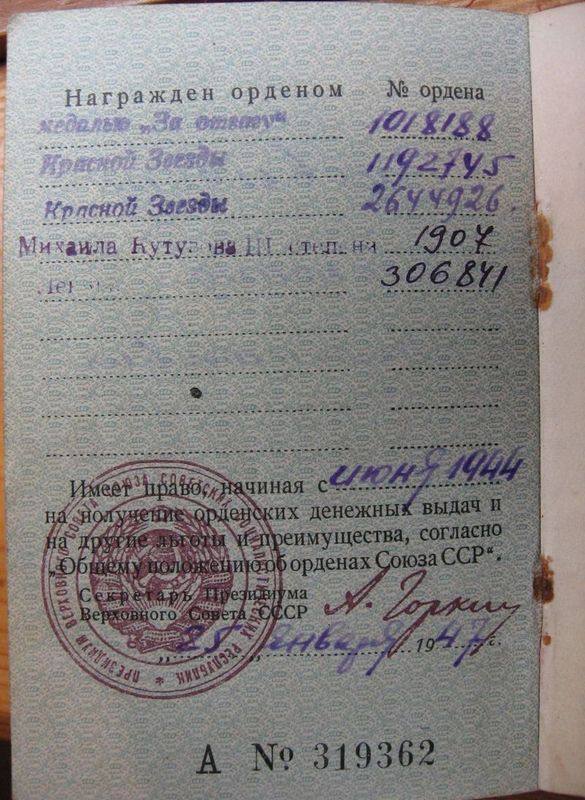 Награжден орденом № ордена
медалью „За отвагу“ 1018188
Красной Звезды 1192745
Красной Звезды 2644926.
Михаила Кутузова III степени 1907
306841
Имеет право, начиная с июня 1944
на получение орденских денежных выдач и
на другие льготы и преимущества, согласно
„Общему положению об орденах Союза ССР“.
Секретарь Президиума
Верховного Совета СССР А. Горкин
„25„ января 1947 г.
ПРЕЗИДИУМ ВЕРХОВНОГО СОВЕТА СОЮЗА СОВЕТСКИХ СОЦИАЛИСТИЧЕСКИХ РЕСПУБЛИК *
А № 319362